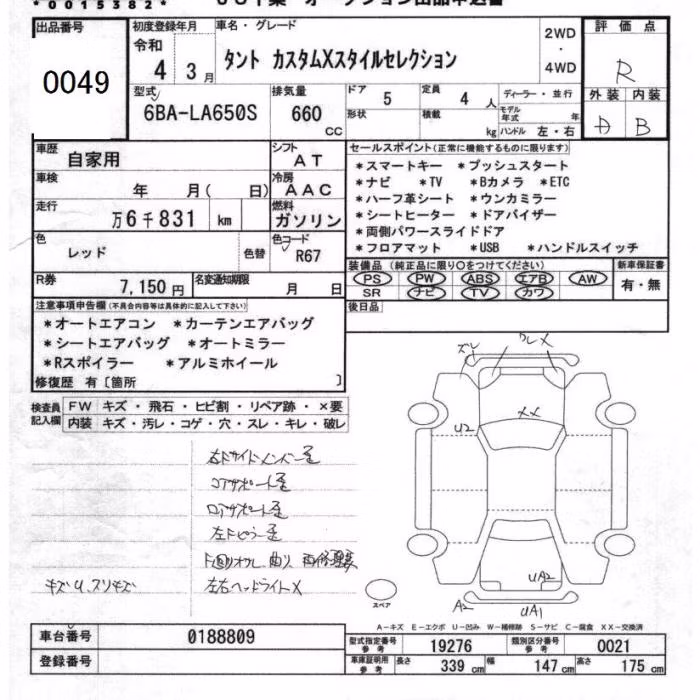 *0015382*
出品番号
0049
初度登録年月
令和
4 3月
車名・グレード
タント カスタムXスタイルセレクション
2WD
・
4WD
評価点
R
型式
6BA-LA650S
排気量
660
CC
ドア
5
定員
4 人
ディーラー・並行
形状
積載
kg
モデル年式
年
ハンドル 左・右
外装 内装
A B
車歴
自家用
シフト
AT
車検
年 月( 日)
冷房
AAC
走行
万6千831 km
燃料
ガソリン
色
レッド
色替
色コード
R67
R券
7,150円
名変通知期限
月 日
セールスポイント(正常に機能するものに限ります)
*スマートキー *プッシュスタート
*ナビ *TV *Bカメラ *ETC
*ハーフ革シート *ウンカミラー
*シートヒーター *ドアバイザー
*両側パワースライドドア
*フロアマット *USB *ハンドルスイッチ
装備品(純正品に限り○をつけてください)
PS PW ABS エアB AW
SR ナビ TV カワ
新車保証書
有・無
後日品
注意事項申告欄(不具合内容等は具体的に記入して下さい)
*オートエアコン *カーテンエアバッグ
*シートエアバッグ *オートミラー
*Rスポイラー *アルミホイール
修復歴 有〔箇所 〕
検査員記入欄
FW キズ・飛石・ヒビ割・リペア跡・×要
内装 キズ・汚レ・コゲ・穴・スレ・キレ・破レ
コアサポート歪
ロアサポート歪
左右ヘッドライトX
キズU、スリキズ
XX
U2
UA2
A2
UA1
スペア
A-キズ E-エクボ U-凹み W-補修跡 S-サビ C-腐食 XX-交換済
車台番号
0188809
登録番号
型式指定番号
参考
19276
類別区分番号
参考
0021
車庫証明用
参考
長さ
339 cm
幅
147 cm
高さ
175 cm